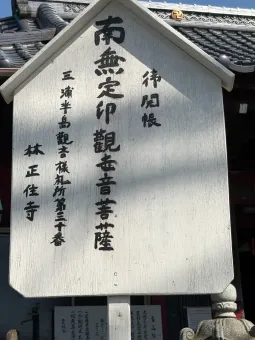 御開帳
南無定印觀世音菩薩
三浦半島觀音様札所第三十番
林正住寺